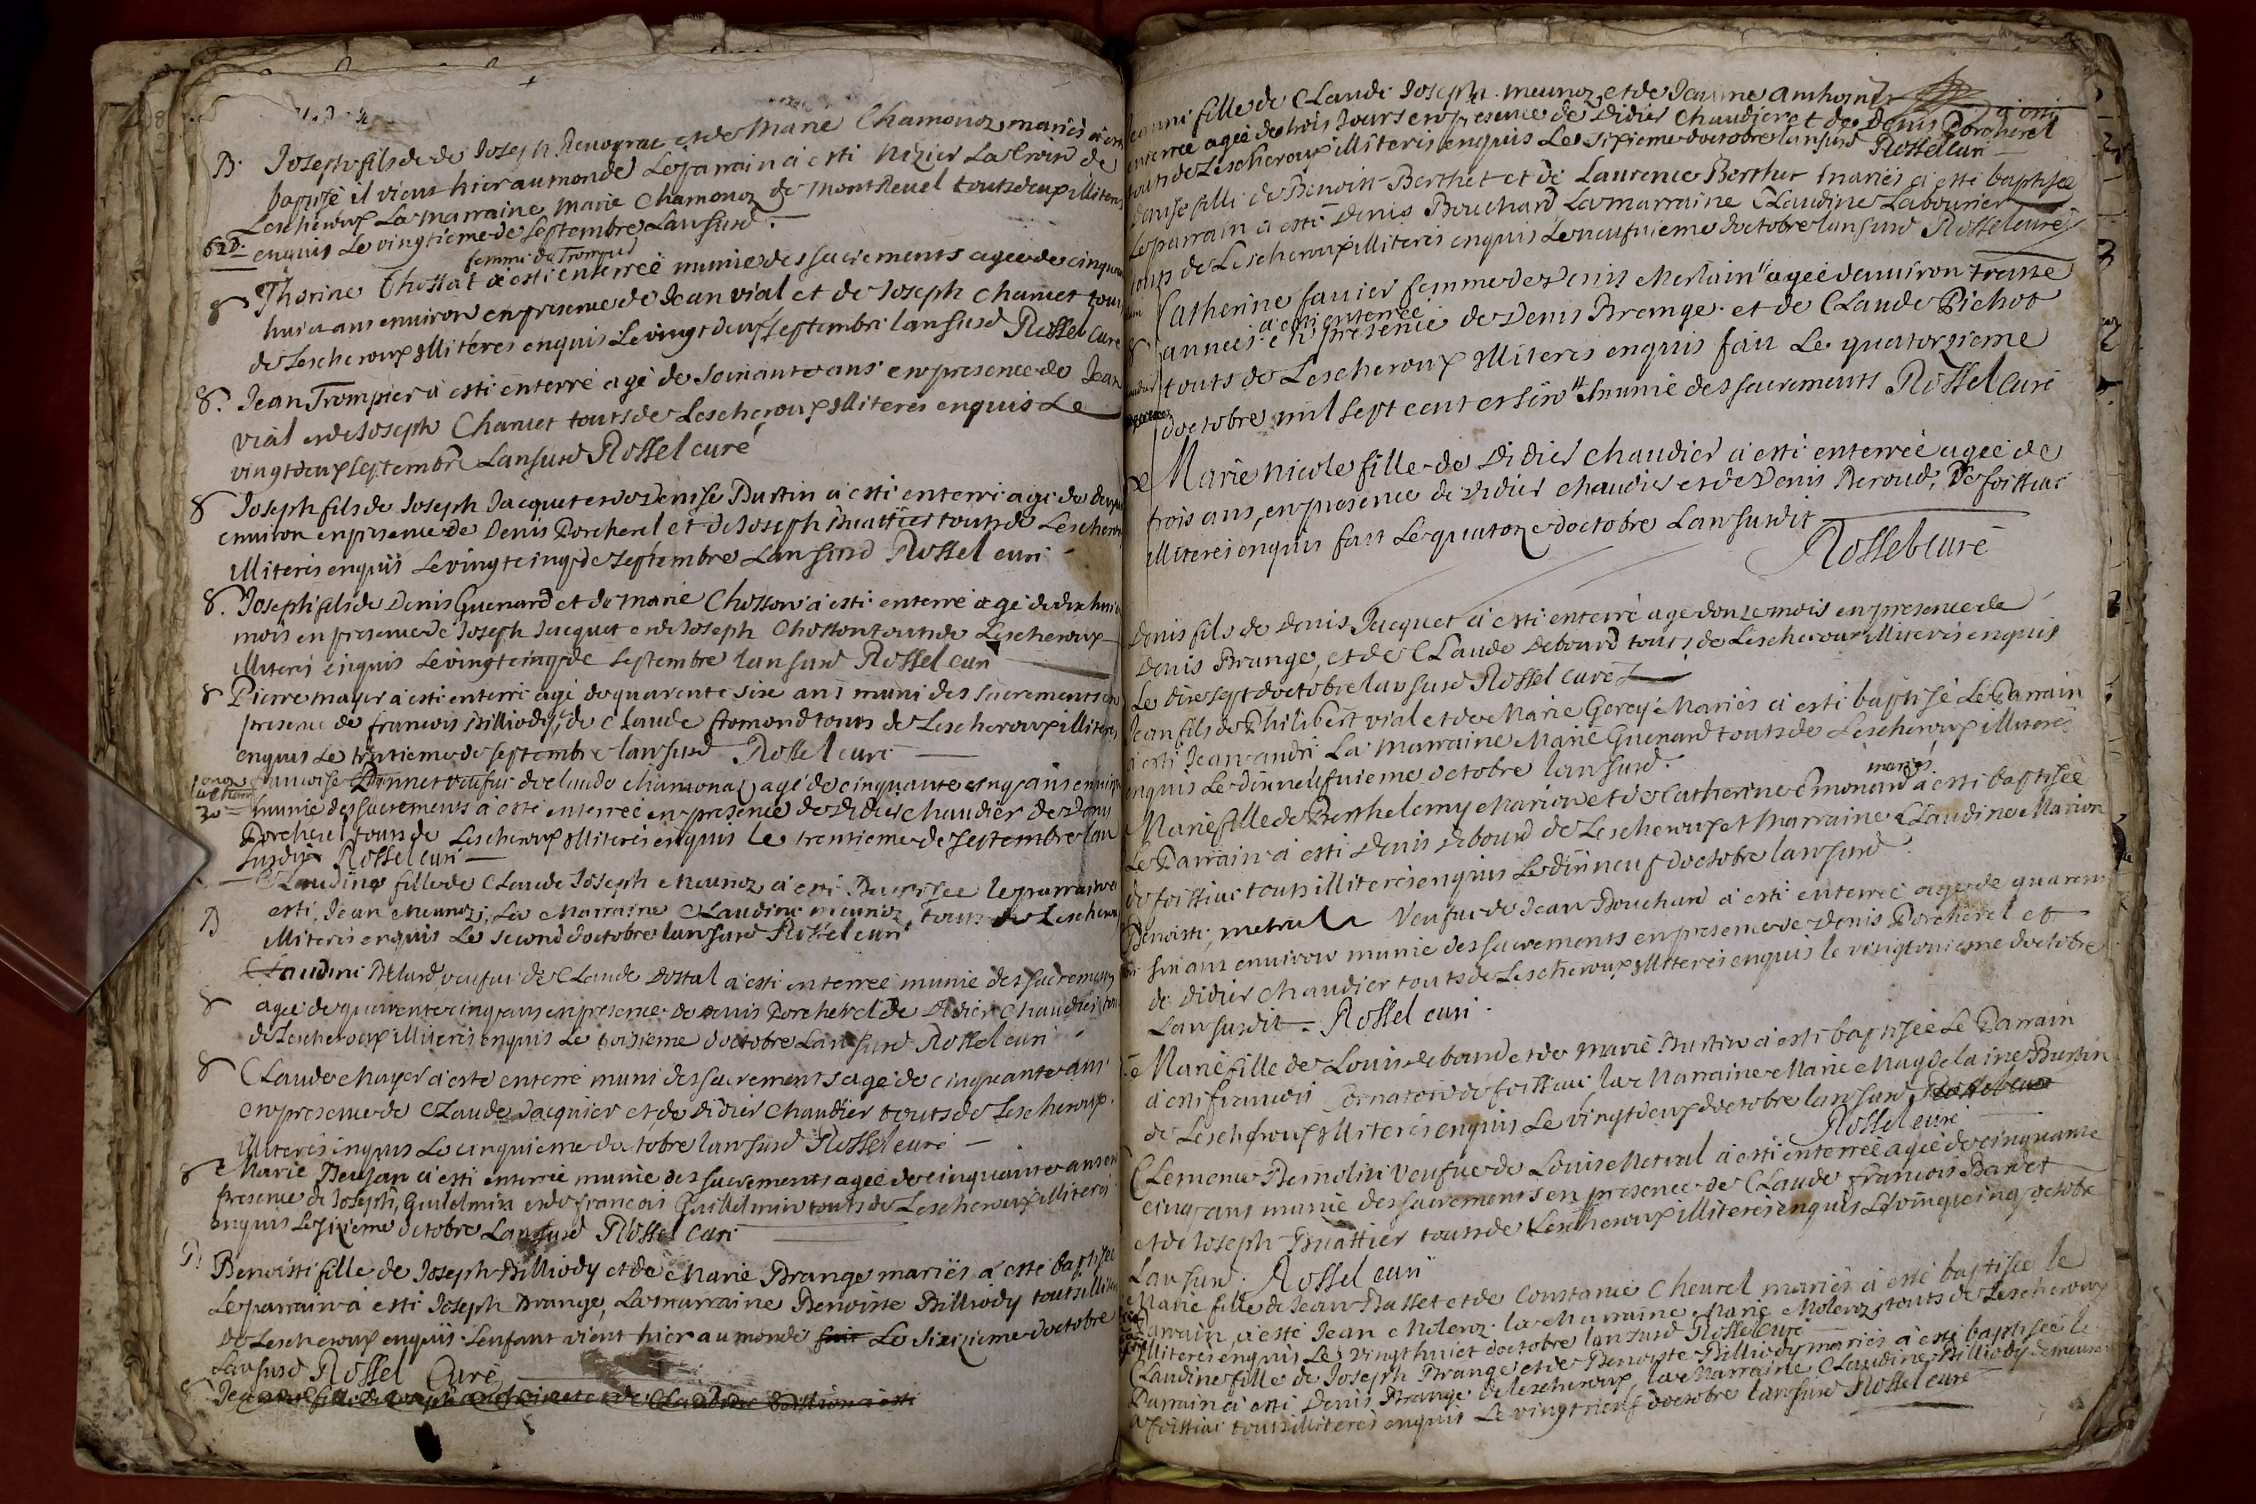 B. Joseph fils de de Joseph et de Marie Chamonoz mariés a esti
baptisé il vient hier au monde Le parrain a esti Nizier La Croix de
Lescheroux La marraine Marie Chamonoz de Montrevel touts deux illiteres
enquis Le vingtieme de septembre Lan susd.
femme de Trompier
8 Thorine Chossat a esti enterreé munie des sacrements ageé de cinquante
huict ans environ en presence de Jean vial et de Joseph Chanvet touts
de Lescheroux illiteres enquis Le vingt deux septembre lan susd Rossel curé
8. Jean Trompier a esti enterré agé de soixante ans en presence de Jean
vial et de Joseph Chanvet touts de Lescheroux illiteres enquis Le
vingt deux septembre Lan susd Rossel curé
8 Joseph fils de Joseph Jacquet et de Denise Burtin a esti enterré agé de
environ en presence de Denis Porcherel et de Joseph Buattier touts de Lescheroux
illiteres enquis Le vingt cinq de septembre Lan susd Rossel curé
8. Joseph fils de Denis Guenard et de Marie Chosson a esti enterré agé de dix huict
mois en presence de Joseph Jacquet et de Joseph Chosson touts de Lescheroux
illiteres enquis Le vingt cinq de septembre lan susd Rossel curé
8 Pierre mayer a esti enterré agé de quarente six ans muni des sacrements en
presence de francois Billiody, de Claude Esmond touts de Lescheroux illiteres
enquis Le trentieme de septembre lan susd Rossel curé
francoise Donnet veufve de claude chamonaz ageé de cinquante cinq ans environ
30 munie des sacrements a esti enterreé en presence de Didier chaudier de Denis
Porcherel touts de Lescheroux illiteres enquis le trentieme de septembre lan
susdit Rossel curé
Claudine fille de Claude Joseph Meunoz a esti Baptisee le parrain a
B esti Jean Meunoz, La Marraine Claudine meunoz touts de Lescheroux
illiteres enquis Le second doctobre lan susd Rossel curé
Claudine veufve de Claude Dostal a esti enterreé munie des sacrements
8 ageé de quarente cinq ans en presence de Denis Porcherel de Didier Chaudier touts
de Lescheroux illiteres enquis Le troisieme doctobre Lan susd Rossel curé
8 Claude Mayer a esté enterré muni des sacrements agé de cinquante ans
en presence de Claude Jacquier et de Didier Chaudier touts de Lescheroux
illiteres enquis Le cinquieme doctobre lan susd Rossel curé
8 Marie Beujan a esti enterreé munie des sacrements ageé de cinquante ans en
presence de Joseph Guillelmin et de francois Guillelmin touts de Lescheroux illiteres
enquis Le sixieme octobre Lan susd Rossel Curé
B Benoisti fille de Joseph Billiody et de Marie Brange mariés a esté baptisée
Le parrain a esti Joseph Brange, La marraine Benoiste Billiody touts illiteres
de Lescheroux enquis Lenfant vient hier au monde fait Le sixieme doctobre
Lan susd Rossel Curé
Jeanni fille de Claude Joseph meunoz et de Jeanne a esti
enterreé ageé de trois Jours en presence de Didier Chaudier et de Denis Porcherel
touts de Lescheroux illiteres enquis Le sixieme doctobre lan susd Rossel curé
fille de Benoist Berthet et de Laurence Berthet mariés a esti baptisée
Le parrain a esti Denis Bouchard La marraine Claudine Labourier
touts de Lescheroux illiteres enquis Le neufvieme doctobre lan susd Rossel curé
Catherine favier femme de Denis Merlain ageé denviron trente
a esti enterreé
annees en presence de Denis Brange et de Claude Pichod
touts de Lescheroux illiteres enquis fait Le quatorzieme
doctobre mil sept cent et six munie des sacrements Rossel Curé
Marie nicole fille de Didier chaudier a esti enterreé ageé de
trois ans, en presence de Didier chaudier et de Denis Beroud, De foissiac
illiteres enquis fait Le quatorze doctobre Lan susdit
Rossel curé
Denis fils de Denis Jacquet a esti enterré agé donze mois en presence de
Denis Brange, et de Claude Debourd touts de Lescheroux illiteres enquis
Le dix sept doctobre lan susd Rossel curé
Jean fils de Philibert vial et de Marie Gerey Mariés a esti baptisé Le Parrain
a esti Jean andri La Marraine Marie Guenard touts de Lescheroux illiteres
enquis Le dixneufvieme octobre lan susd.
mariés
Marie fille de Berthelemy Marion et de Catherine Emonard a esti baptisée
Le Parrain a esti Denis Debourd de Lescheroux et Marraine Claudine Marion
de foissiac touts illiteres enquis Le dixneuf doctobre lan susd
Benoisti, metral Veufve de Jean Bouchard a esti enterreé ageé de quarente
six ans environ munie des sacrements en presence de Denis Porcherel et
de Didier Chaudier touts de Lescheroux illiteres enquis le vingtunieme doctobre
Lan susdit. Rossel curé
Marie fille de Louis debourd et de marie Burtin a esti baptisée Le Parrain
a esti francois de foissiac la Marraine Marie Magdelaine Burtin
de Lescheroux illiteres enquis Le vingt deux doctobre lan susd Rossel curé
Rossel curé
Clemence Bernolin Veufve de Louis Metral a esti enterreé ageé de cinquante
cinq ans munie des sacrements en presence de Claude francois Bardet
et de Joseph Buattier touts de Lescheroux illiteres enquis Le vingt cinq octobre
Lan susd. Rossel curé
Marie fille de Jean Basset et de Constance Chevrel mariés a esté baptisée le
Parrain a esté Jean Molenoz la Marraine Marie Molenoz touts de Lescheroux
illiteres enquis Le vingthuict doctobre lan susd Rossel Curé
Claudine fille de Joseph Brange et de Benoiste Billiody mariés a esté baptisée le
Parrain a esti Denis Brange de lescheroux la Marraine Claudine Billiody demeurant
a foissiac touts illiteres enquis Le vingt neuf doctobre lan susd Rossel curé